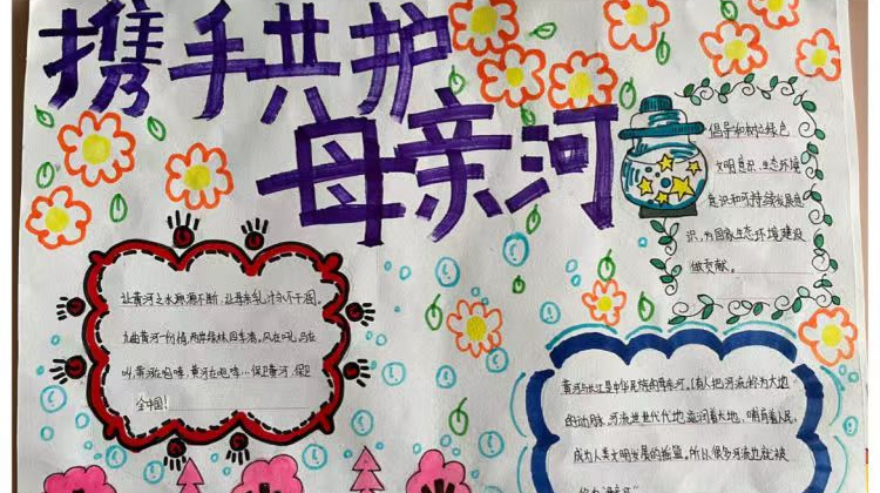 携手共护
母亲河
倡导和树立绿色
文明意识、生态环境
意识和可持续发展意
识,为国家生态环境建设
做贡献。
让黄河之水源源不断,让母亲乳汁永不干涸。
九曲黄河一份情,两岸绿林四季清。风在吼,马在
叫,黄河在咆哮,黄河在咆哮…保卫黄河,保卫
全中国!
黄河与长江是中华民族的母亲河。有人把河流称为大地
的动脉,河流世世代代地滋润着大地、哺育着人民,
成为人类文明发展的摇篮。所以,很多河流也就被